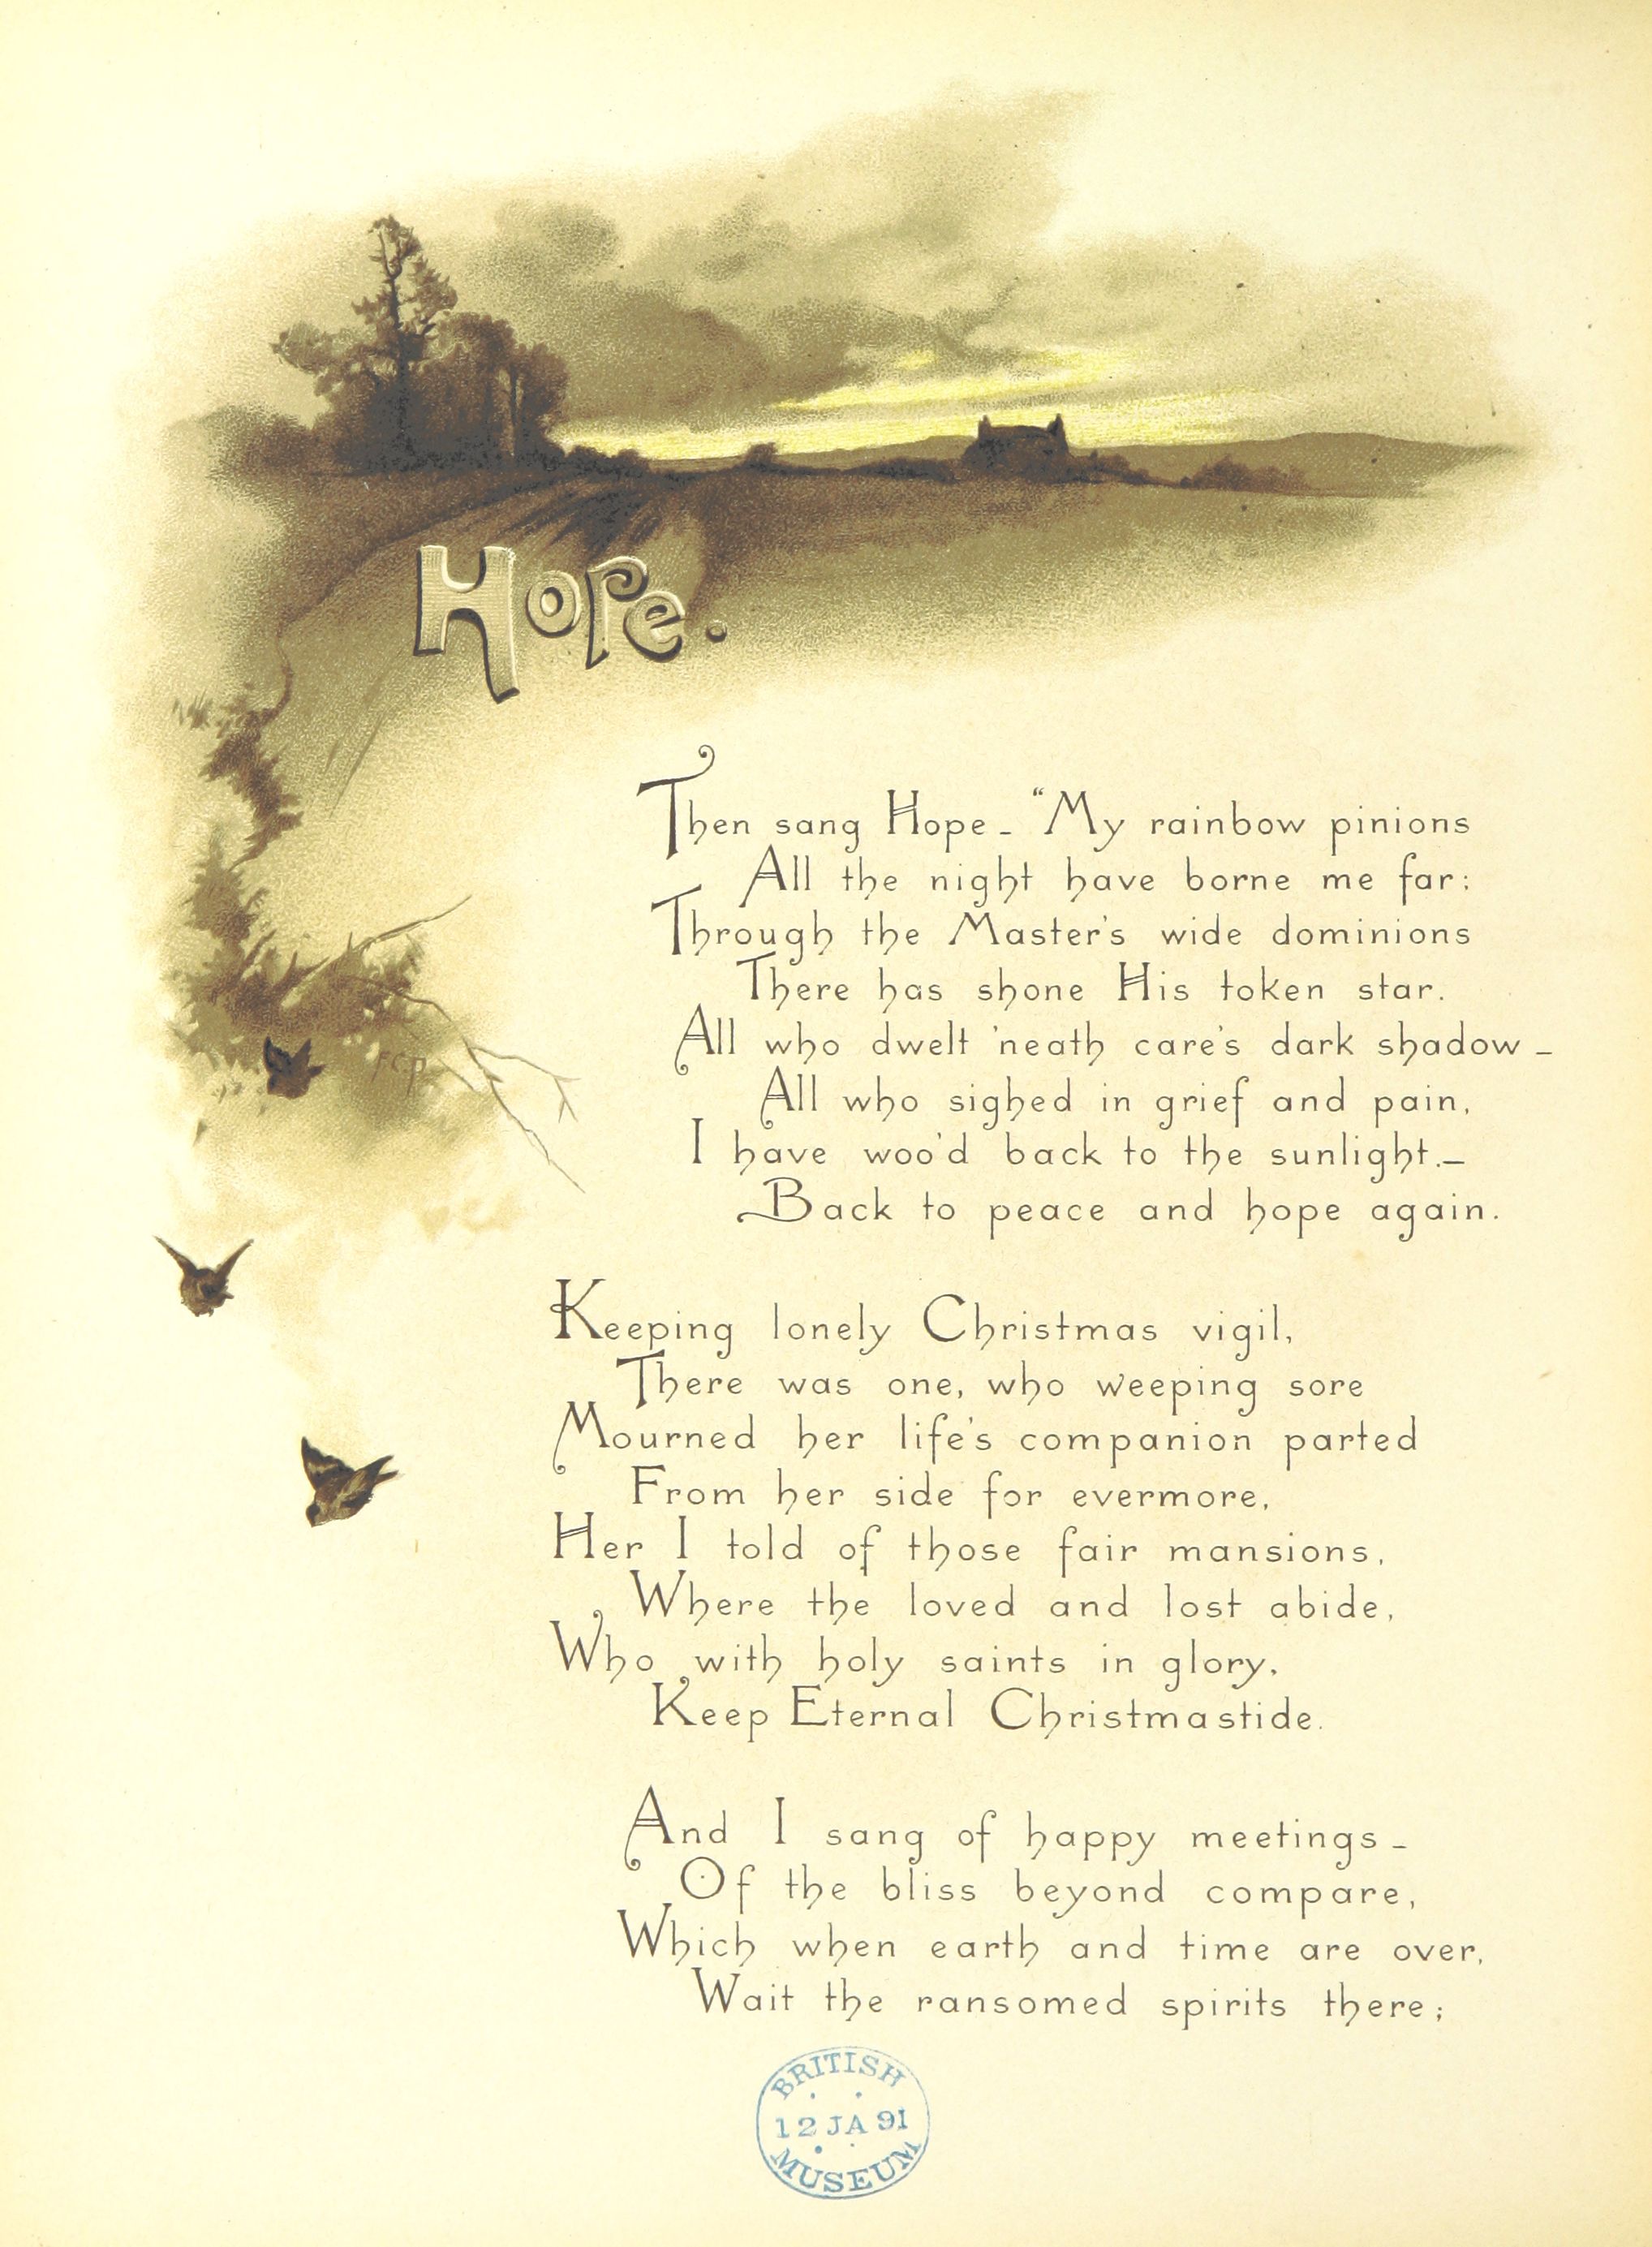 Hope.
Then sang Hope - “My rainbow pinions
All the night have borne me far:
Through the Master's wide dominions
There has shone His token star.
All who dwelt 'neath care's dark shadow -
All who sighed in grief and pain,
I have woo'd back to the sunlight.-
Back to peace and hope again.
Keeping lonely Christmas vigil,
There was one, who weeping sore
Mourned her life's companion parted
From her side for evermore,
Her I told of those fair mansions,
Where the loved and lost abide,
Who with holy saints in glory,
Keep Eternal Christmastide.
And I sang of happy meetings -
Of the bliss beyond compare,
Which when earth and time are over,
Wait the ransomed spirits there;
FCP
BRITISH
12 JA 91
MUSEUM